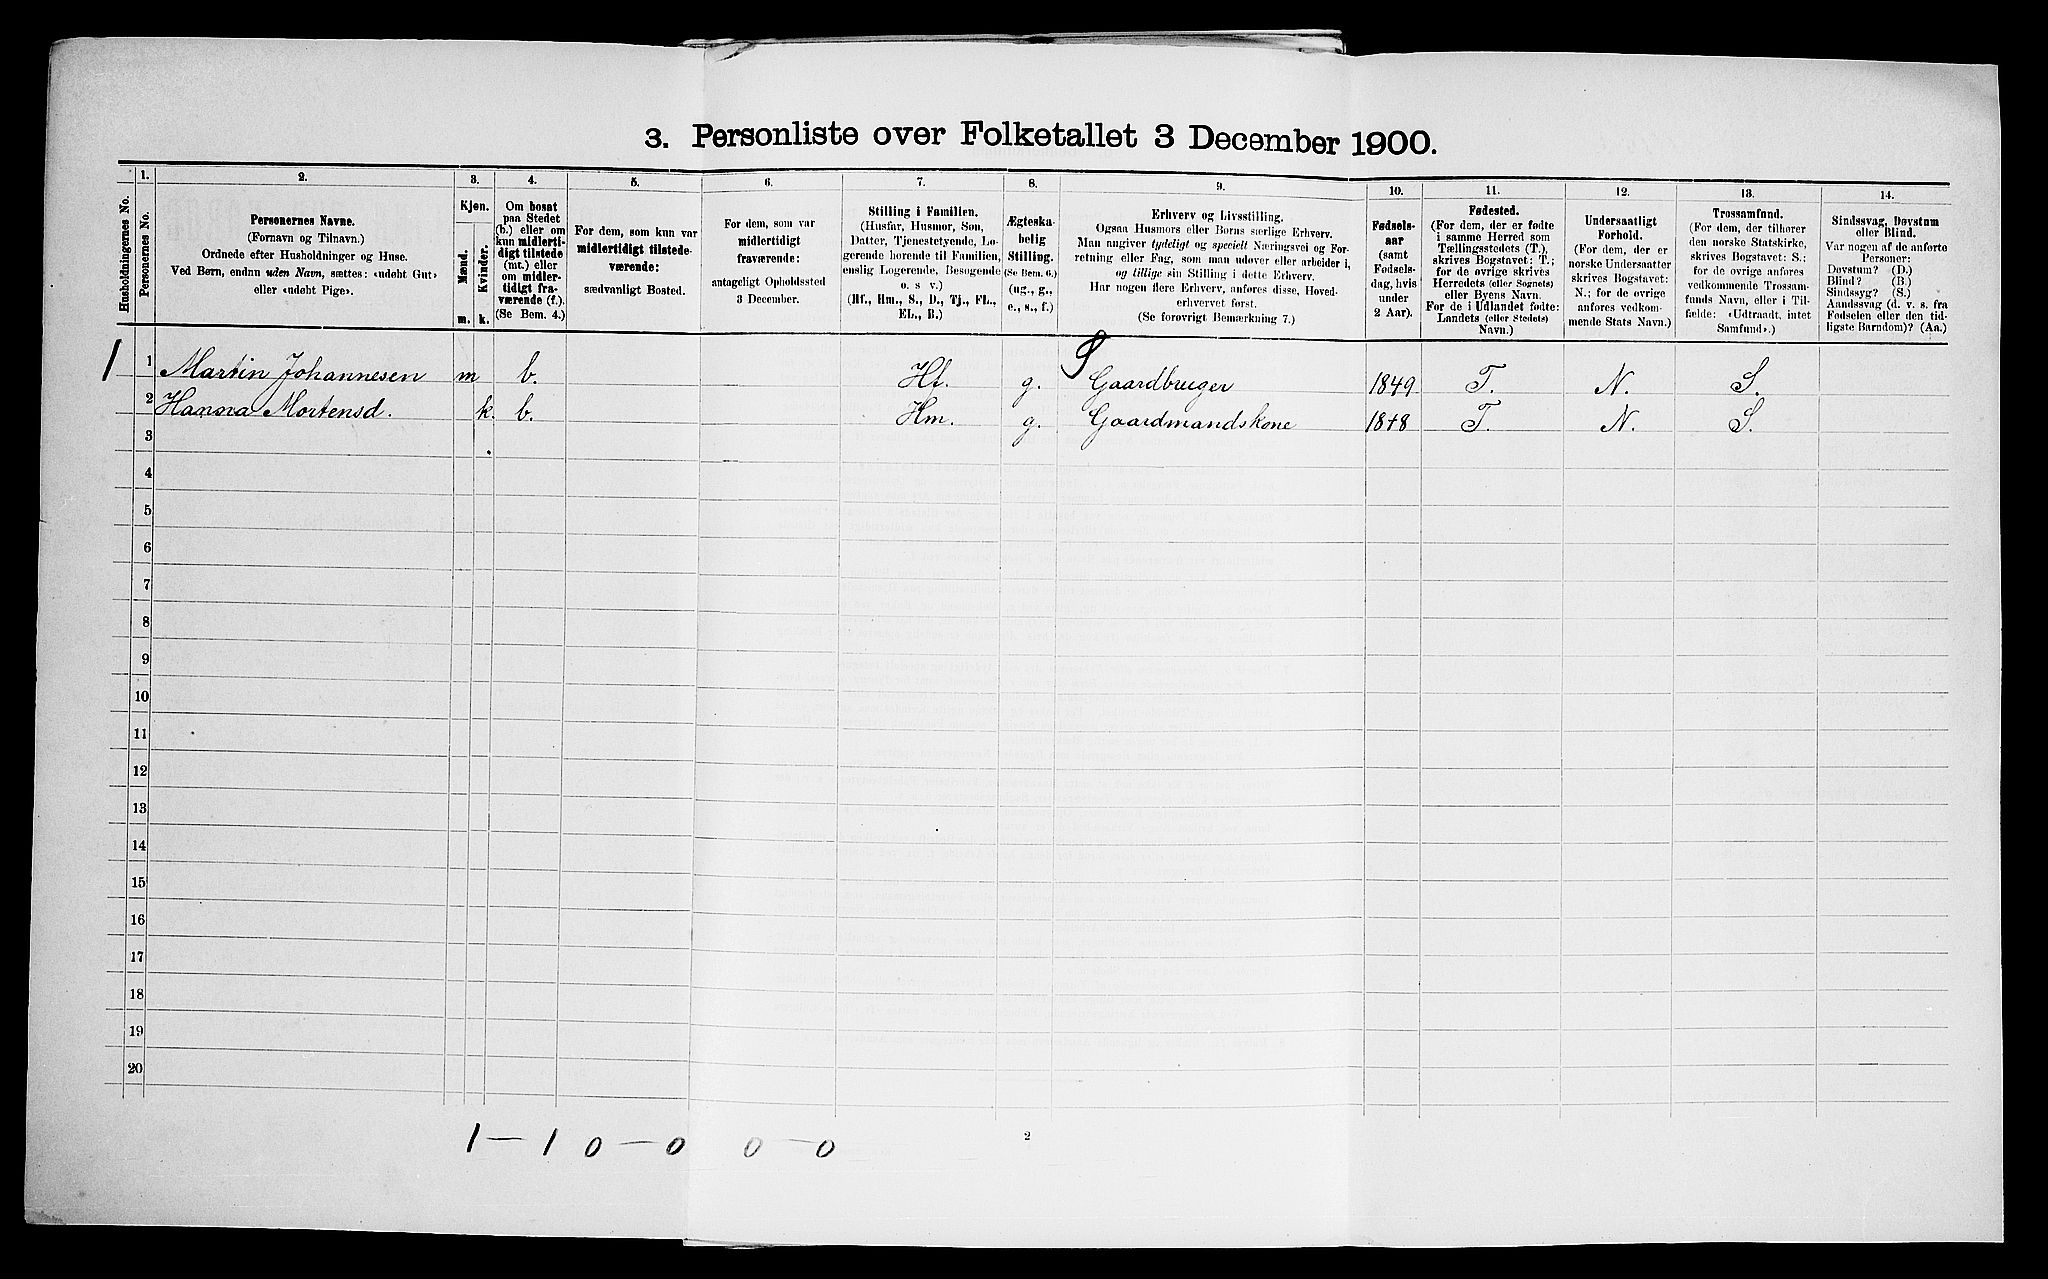 3. Personliste over Folketallet 3 December 1900.
Husholdningernes No.
1.
Personernes No.
2.
Personernes Navne.
(Fornavn og Tilnavn.)
Ordnede efter Husholdninger og Huse.
Ved Børn, endnu uden Navn, sættes: «udøbt Gut»
eller «udøbt Pige».
3.
Kjøn.
Mænd.
Kvinder.
m. k.
4.
Om bosat
paa Stedet
(b.) eller om
kun midlerti-
digt tilstede
(mt.) eller
om midler-
tidigt fra-
værende (f.).
(Se Bem. 4.)
5.
For dem, som kun var
midlertidigt tilstede-
værende:
sædvanligt Bosted.
6.
For dem, som var
midlertidigt
fraværende:
antageligt Opholdssted
3 December.
7.
Stilling i Familien.
(Husfar, Husmor, Søn,
Datter, Tjenestetyende, Lo-
gerende hørende til Familien,
enslig Logerende, Besøgende
o. s v.)
(Hf., Hm., S., D., Tj., FL.,
EL., B.)
8.
Ægteska-
belig
Stilling.
(Se Bem. 6.)
(ug., g.,
e., s., f.)
9.
Erhverv og Livsstilling.
Ogsaa Husmors eller Børns særlige Erhverv.
Man angiver tydeligt og specielt Næringsvei og For-
retning eller Fag, som man udøver eller arbeider i,
og tillige sin Stilling i dette Erhverv.
Har nogen flere Erhverv, anføres disse, Hoved-
erhvervet først.
(Se forøvrigt Bemærkning 7.)
10.
Fødsels-
aar
(samt
Fødsels-
dag, hvis
under
2 Aar).
11.
Fødested.
(For dem, der er fødte
i samme Herred som
Tællingsstedets (T.),
skrives Bogstavet: T.;
for de øvrige skrives
Herredets (eller Sognets)
eller Byens Navn.
For de i Udlandet fødte:
Landets (eller Stedets)
Navn.)
12.
Undersaatligt
Forhold.
(For dem, der er
norske Undersaatter
skrives Bogstavet:
N.; for de øvrige
anføres vedkom-
mende Stats Navn.)
13.
Trossamfund.
(For dem, der tilhører
den norske Statskirke,
skrives Bogstavet: S.;
for de øvrige anføres
vedkommende Trossam-
funds Navn, eller i Til-
fælde: «Udtraadt, intet
Samfund».)
14.
Sindssvag, Døvstum
eller Blind.
Var nogen af de anførte
Personer:
Døvstum? (D.)
Blind? (B.)
Sindssyg? (S.)
Aandssvag (d. v. s. fra
Fødselen eller den tid-
ligste Barndom)? (Aa.)
S
1 1 Martin Johannesen m b. Hf. g. Gaardbruger 1849 T. N. S.
2 Hanna Mortensd. k. b. Hm. g. Gaardmandskone 1848 T. N. S.
3
4
5
6
7
8
9
10
11
12
13
14
15
16
17
18
19
20
1 – 1 0 – 0 0 – 0
2